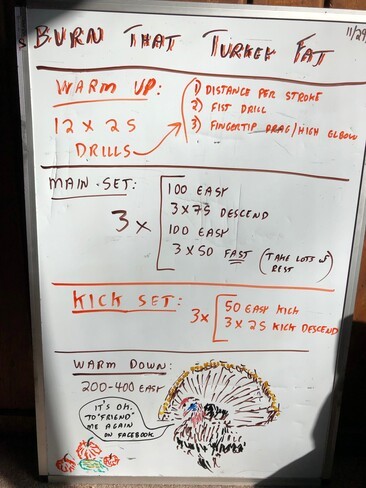 11/29
BURN THAT TURKEY FAT
WARM UP:
12 x 25
DRILLS
1) DISTANCE PER STROKE
2) FIST DRILL
3) FINGERTIP DRAG/HIGH ELBOW
MAIN SET:
3x
100 EASY
3 x 75 DESCEND
100 EASY
3 x 50 FAST (TAKE LOTS OF
REST)
KICK SET:
3x
50 EASY KICK
3 x 25 KICK DESCEND
WARM DOWN:
200-400 EASY
IT'S OK.
TO "FRIEND"
ME AGAIN
ON FACEBOOK